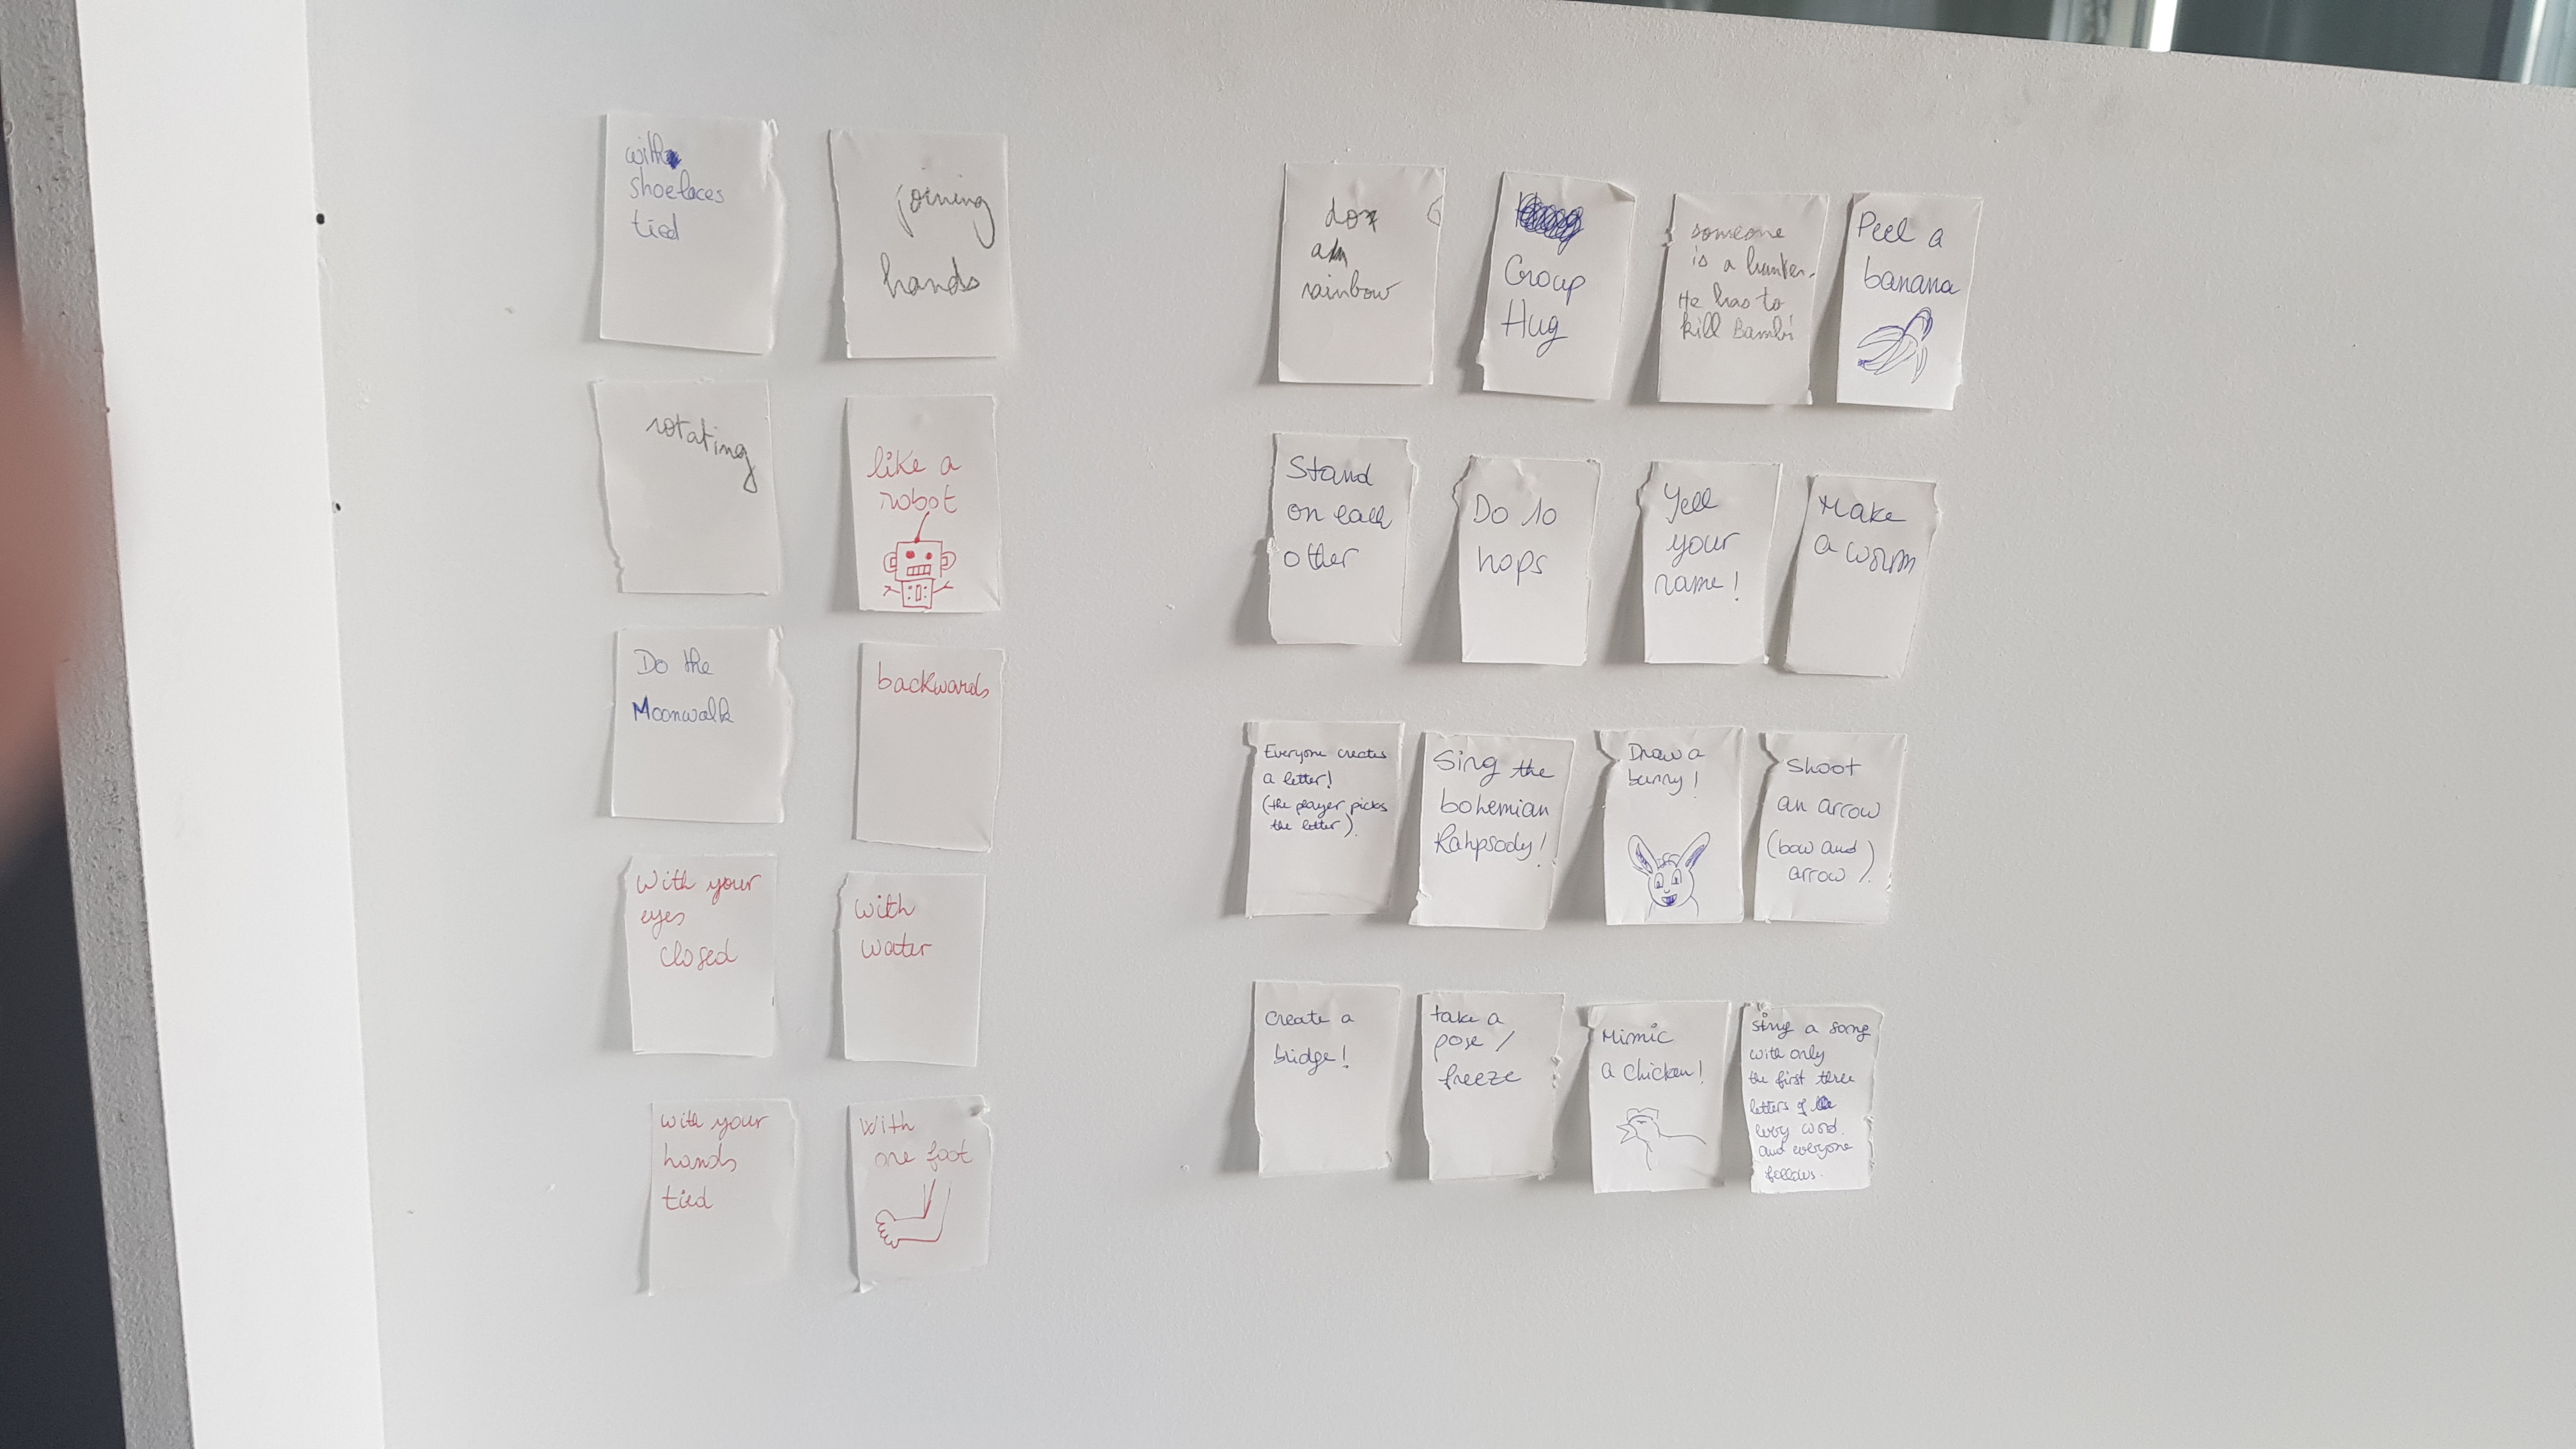 with
shoelaces
tied
joining
hands
rotating
like a
robot
Do the
Moonwalk
backwards
With your
eyes
closed
with
water
with your
hands
tied
With
one foot
do
a
rainbow
Group
Hug
someone
is a hunter.
He has to
kill Bambi
Peel a
banana
Stand
on each
other
Do 10
hops
Yell
your
name!
Make
a worm
Everyone creates
a letter!
(the player picks
the letter).
Sing the
bohemian
Rahpsody!
Draw a
bunny!
Shoot
an arrow
(bow and)
arrow).
Create a
bridge!
take a
pose /
freeze
Mimic
a chicken!
sing a song
with only
the first three
letters of
every word.
and everyone
follows.